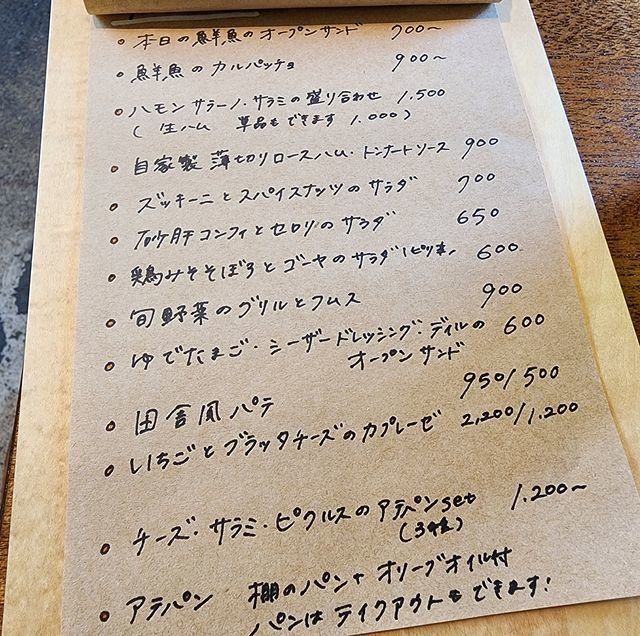 • 本日の鮮魚のオープンサンド 700〜
• 鮮魚のカルパッチョ 900〜
• ハモンサラーノ・サラミの盛り合わせ 1,500
( 生ハム 単品もできます 1,000 )
• 自家製 薄切りロースハム・トンナートソース 900
• ズッキーニとスパイスナッツのサラダ 700
• 砂肝コンフィとセロリのサラダ 650
• 鶏みそそぼろとゴーヤのサラダ(ピリ辛) 600
• 旬野菜のグリルとフムス 900
• ゆでたまご・シーザードレッシング・ディルの 600
オープンサンド
• 田舎風パテ 950/500
• いちごとブラッタチーズのカプレーゼ 2,200/1,200
• チーズ・サラミ・ピクルスのアテパンset 1,200〜
(3種)
• アテパン 棚のパン+オリーブオイル付
パンはテイクアウトもできます!